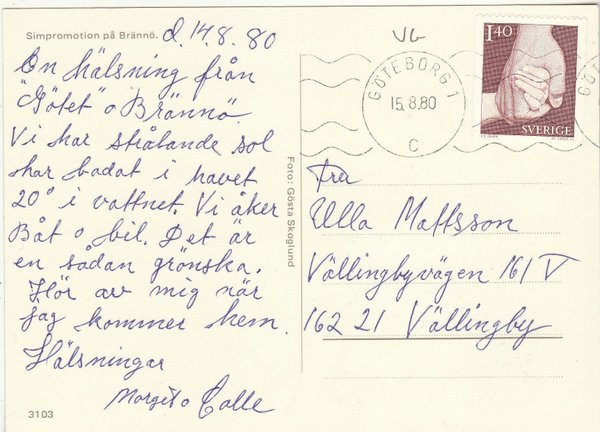 Simpromotion på Brännö. d. 14.8.80
En hälsning från
"Götet" o Brännö.
Vi har strålande sol
har badat i havet
20° i vattnet. Vi åker
Båt o bil. Det är
en sådan grönska.
Hör av mig när
jag kommer hem.
Hälsningar
Margit o Calle
3103
Foto: Gösta Skoglund
VG
GÖTEBORG 1
15.8.80
C
GÖ
1.40
SVERIGE
Fru
Ulla Mattsson
Vällingbyvägen 161 V
162 21 Vällingby